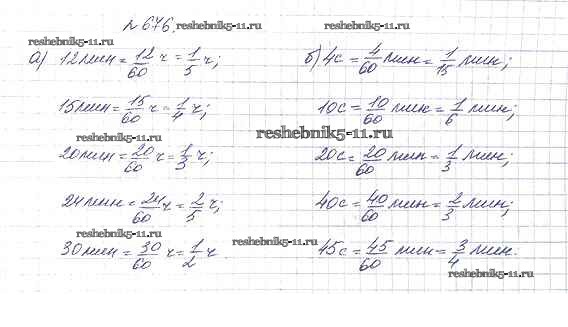 № 676. reshebnik5-11.ru reshebnik5-11.ru
reshebnik5-11.ru
а) 12 мин = 12/60 ч = 1/5 ч; б) 4с = 4/60 мин = 1/15 мин;
15 мин = 15/60 ч = 1/4 ч; 10с = 10/60 мин = 1/6 мин;
reshebnik5-11.ru reshebnik5-11.ru
20 мин = 20/60 ч = 1/3 ч; 20с = 20/60 мин = 1/3 мин;
reshebnik5-11.ru
24 мин = 24/60 ч = 2/5 ч; 40с = 40/60 мин = 2/3 мин;
reshebnik5-11.ru reshebnik5-11.ru
30 мин = 30/60 ч = 1/2 ч 45с = 45/60 мин = 3/4 мин.
reshebnik5-11.ru